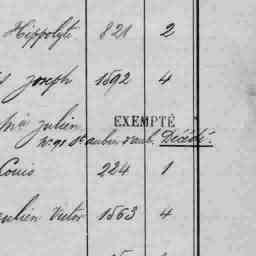 Hippolyte 821 2
Joseph 1592 4
Julien EXEMPTÉ
Décédé.
Louis 224 1
Julien Victor 1563 4